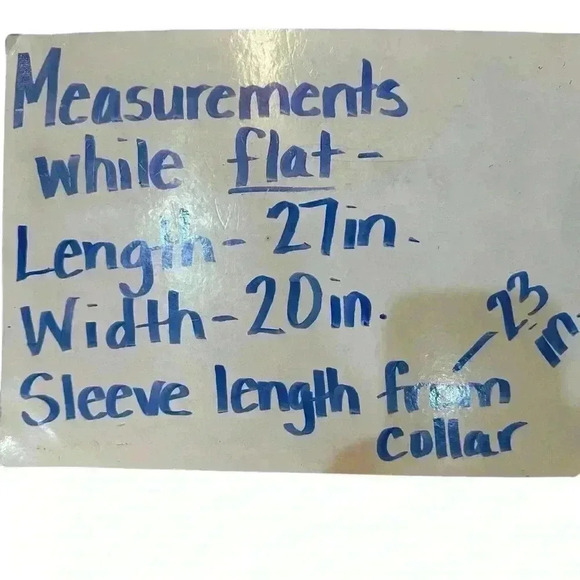 Measurements
while flat-
Length- 27in.
Width-20in.
Sleeve length from - 23 in.
collar